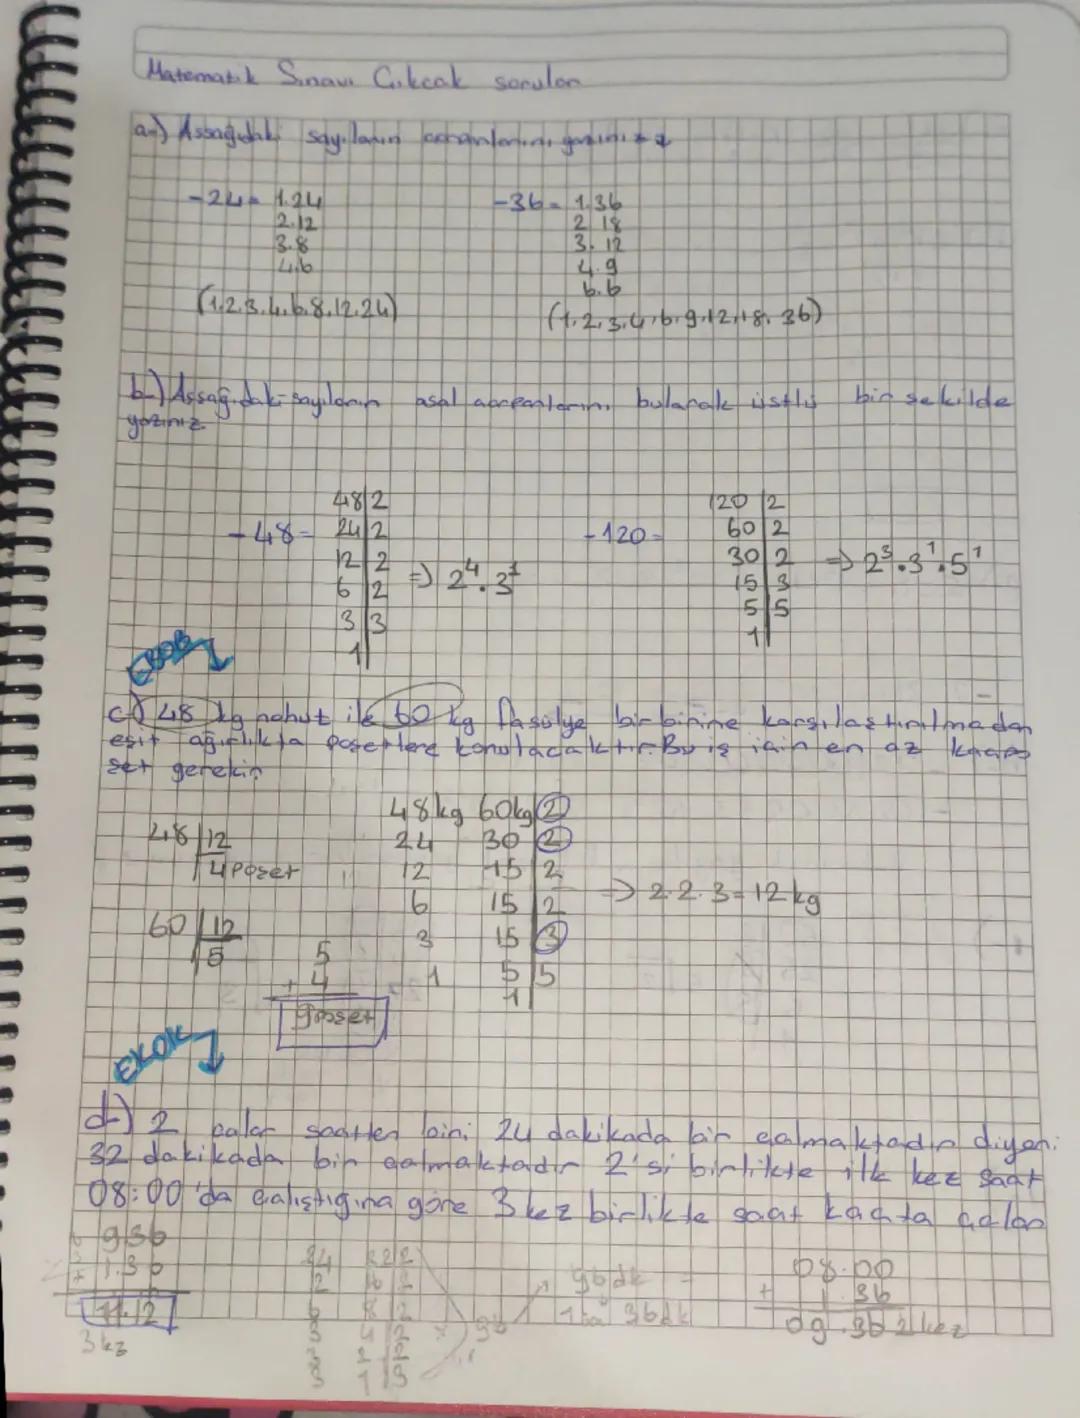 Matematik Sınavı Çıkcak sorular
a-) Assağıdaki sayıların çarpanlarını yazınız
-24= 1.24
2.12
3.8
4.6
(1.2.3.4.6.8.12.24)
-36= 1.36
2 18
3. 12
4.9
6.6
(1.2.3.4.6.9.12.18.36)
b-) Assağıdaki sayıların asal çarpanlarını bularak üstlü bir sekilde
yazınız
-48=
48|2
24|2
12|2
6|2
3|3
1|
⇒ 2⁴.3¹
-120=
120|2
60|2
30|2
15|3
5|5
1|
⇒ 2³.3¹.5¹
EBOB
c-) 48 kg nohut ile 60 kg fasülye birbirine karşılaştırılmadan
eşit ağırlıkta poşetlere konulacaktır. Bu iş için en az kaç po
şet gerekir
48kg 60kg|2
24 30|2
12 15|2
6 15|2
3 15|3
1 5|5
1|
⇒ 2.2.3=12 kg
48|12
4 poşet
60|12
5
5
+ 4
9 poşet
EKOK
d-) 2 çalar saatten biri 24 dakikada bir çalmaktadır diğeri
32 dakikada bir çalmaktadır 2'si birlikte ilk kez saat
08:00'da çalıştığına göre 3 kez birlikte saat kaçta çalar
9.36
+ 1.36
11.12
3 kez
24 32|2
12 16 2
6 8|2
3 4|2
3 2 2
3 1|3
96
96 dk =
1 sa 36 dk
08.00
+ 1.36
09.36 2 kez